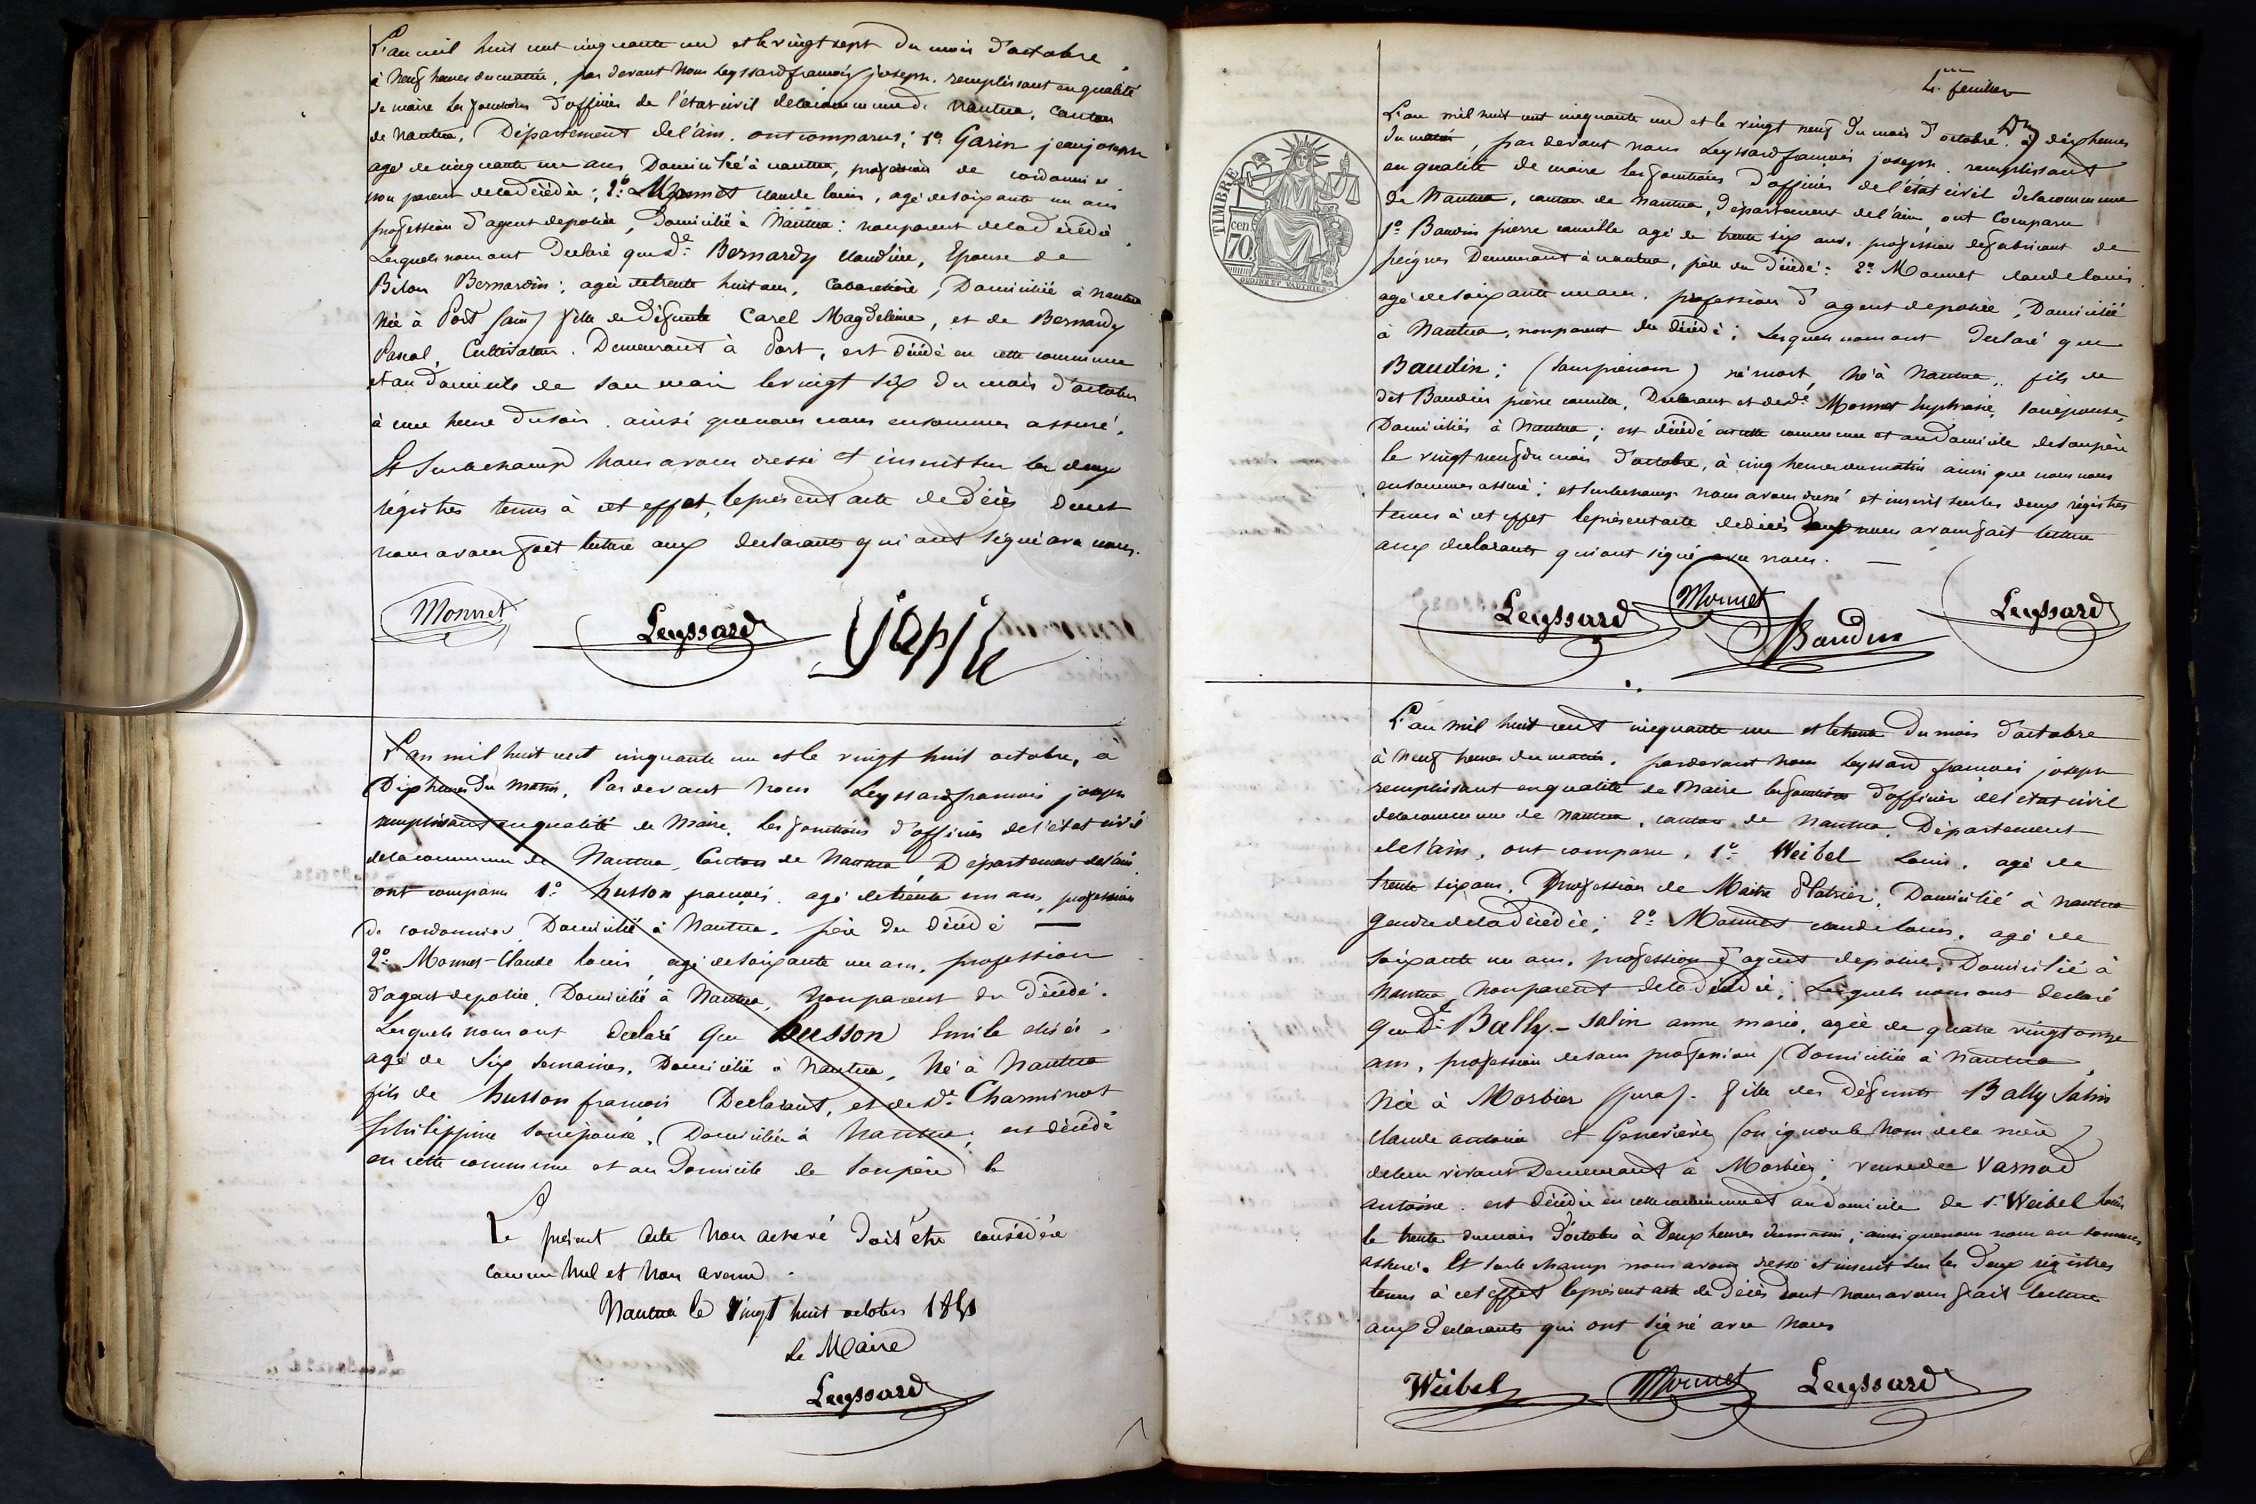 L'an mil huit cent cinquante un et le vingt sept du mois d'octobre
à neuf heures du matin, par devant nous Leyssard françois joseph. remplissant en qualité
de maire les fonctions d'officier de l'état civil de la commune de Nantua, canton
de Nantua, Département de l'ain. ont comparus: 1º Garin jean joseph
agé de cinquante un ans, Domicilié à nantua, profession de cordonnier
non parent de la décédée; 2º Monnet Claude louis, agé de soixante un ans
profession d'agent de police, Domicilié à Nantua: non parent de la décédée.
Lesquels nous ont Déclaré que de. Bernardy Claudine, Epouse de
Bernardin; agée de trente huit ans, Cabaretière, Domiciliée à nantua
Née à Port (ain) fille de défunte Carel Magdeleine, et de Bernardy
Pascal, Cultivateur. Demeurant à Port, est décédé en cette commune
et au domicile de son mari le vingt six du mois d'octobre
à une heure du soir. ainsi que nous nous en sommes assuré.
Et Sur le champ Nous avons dressé et inscrit sur les deux
régistres tenus à cet effet, le présent acte de décès Dont
nous avons fait lecture aux déclarants qui ont signé avec nous.
Monnet Leyssard
L'an mil huit cent cinquante un et le vingt huit octobre, à
Dix heures du matin, Par devant nous Leyssard francois joseph
remplissant en qualité de Maire, les fonctions d'officier de l'état civil
de la commune de Nantua, Canton de Nantua Département de l'ain
ont comparus 1º husson francois. agé de trente un ans, profession
de cordonnier, Domicilié à Nantua. père du décédé —
2º Monnet Claude louis, agé de soixante un ans, profession
d'agent de police, Domicilié à Nantua, non parent du Décédé.
Lesquels nous ont déclaré que husson Emile
agé de Six semaines, Domicilié à Nantua, Né à Nantua
fils de husson francois Déclarant, et de de. Charminot
philippine son épouse, Domiciliée à Nantua; est décédé
en cette commune et au Domicile de son père le
Le présent acte non achevé doit être considéré
comme Nul et Non avenu.
Nantua le Vingt huit octobre 1851
Le Maire
Leyssard
4me feuillet
TIMBRE
cen.
70.
L'an mil huit cent cinquante un et le vingt neuf du mois d'octobre à dix heures
du matin, par devant nous Leyssard francois joseph remplissant
en qualité de maire les fonctions d'officier de l'état civil de la commune
de Nantua, canton de Nantua, Département de l'ain ont Comparu
1º Baudin pierre camille agé de trente six ans, profession de fabricant de
peignes Demeurant à nantua, père du décédé: 2º Monnet claude louis
agé de soixante un ans. profession d'agent de police, Domicilié
à Nantua, non parent du décédé; Lesquels nous ont Déclaré que
Baudin: (sans prénom) né mort, Né à Nantua, fils de
dit Baudin pierre camille, Déclarant et de de. Monnet Euphrasie, son épouse,
Domiciliés à Nantua; est décédé en cette commune et au Domicile de son père
le vingt neuf du mois d'octobre, à cinq heures du matin ainsi que nous nous
en sommes assuré: et sur le champ nous avons dressé et inscrit sur les deux régistres
tenus à cet effet le présent acte de décès nous avons fait lecture
aux déclarants qui ont signé avec nous. —
Leyssard Monnet Baudin Leyssard
L'an mil huit cent cinquante un et le trente du mois d'octobre
à neuf heures du matin, par devant nous Leyssard francois joseph
remplissant en qualité de Maire les fonctions d'officier de l'état civil
de la commune de Nantua, canton de Nantua Département
de l'ain, ont comparu. 1º Weibel Louis, agé de
trente six ans, Profession de Maître Platrier, Domicilié à Nantua
gendre de la Décédée; 2º Monnet claude louis, agé de
soixante un ans, profession d'agent de police, Domicilié à
Nantua, non parent de la Décédée; Lesquels nous ont déclaré
que de. Bally-Salin anne marie, agée de quatre vingt onze
ans, profession de sans profession, Domiciliée à Nantua
Née à Morbier (Jura). fille des Défunts Bally Salin
Claude antoine et Geneviève (on ignore le nom de la mère)
de leur vivant Demeurant à Morbier; veuve de Varnod
antoine. est décédée en cette commune et au domicile de s. Weibel louis
le trente du mois d'octobre à Deux heures du matin, ainsi que nous nous en sommes
assuré. Et sur le champ nous avons dressé et inscrit sur les Deux régistres
tenus à cet effet le présent acte de Décès dont nous avons fait lecture
aux Déclarants qui ont signé avec Nous
Weibel Monnet Leyssard